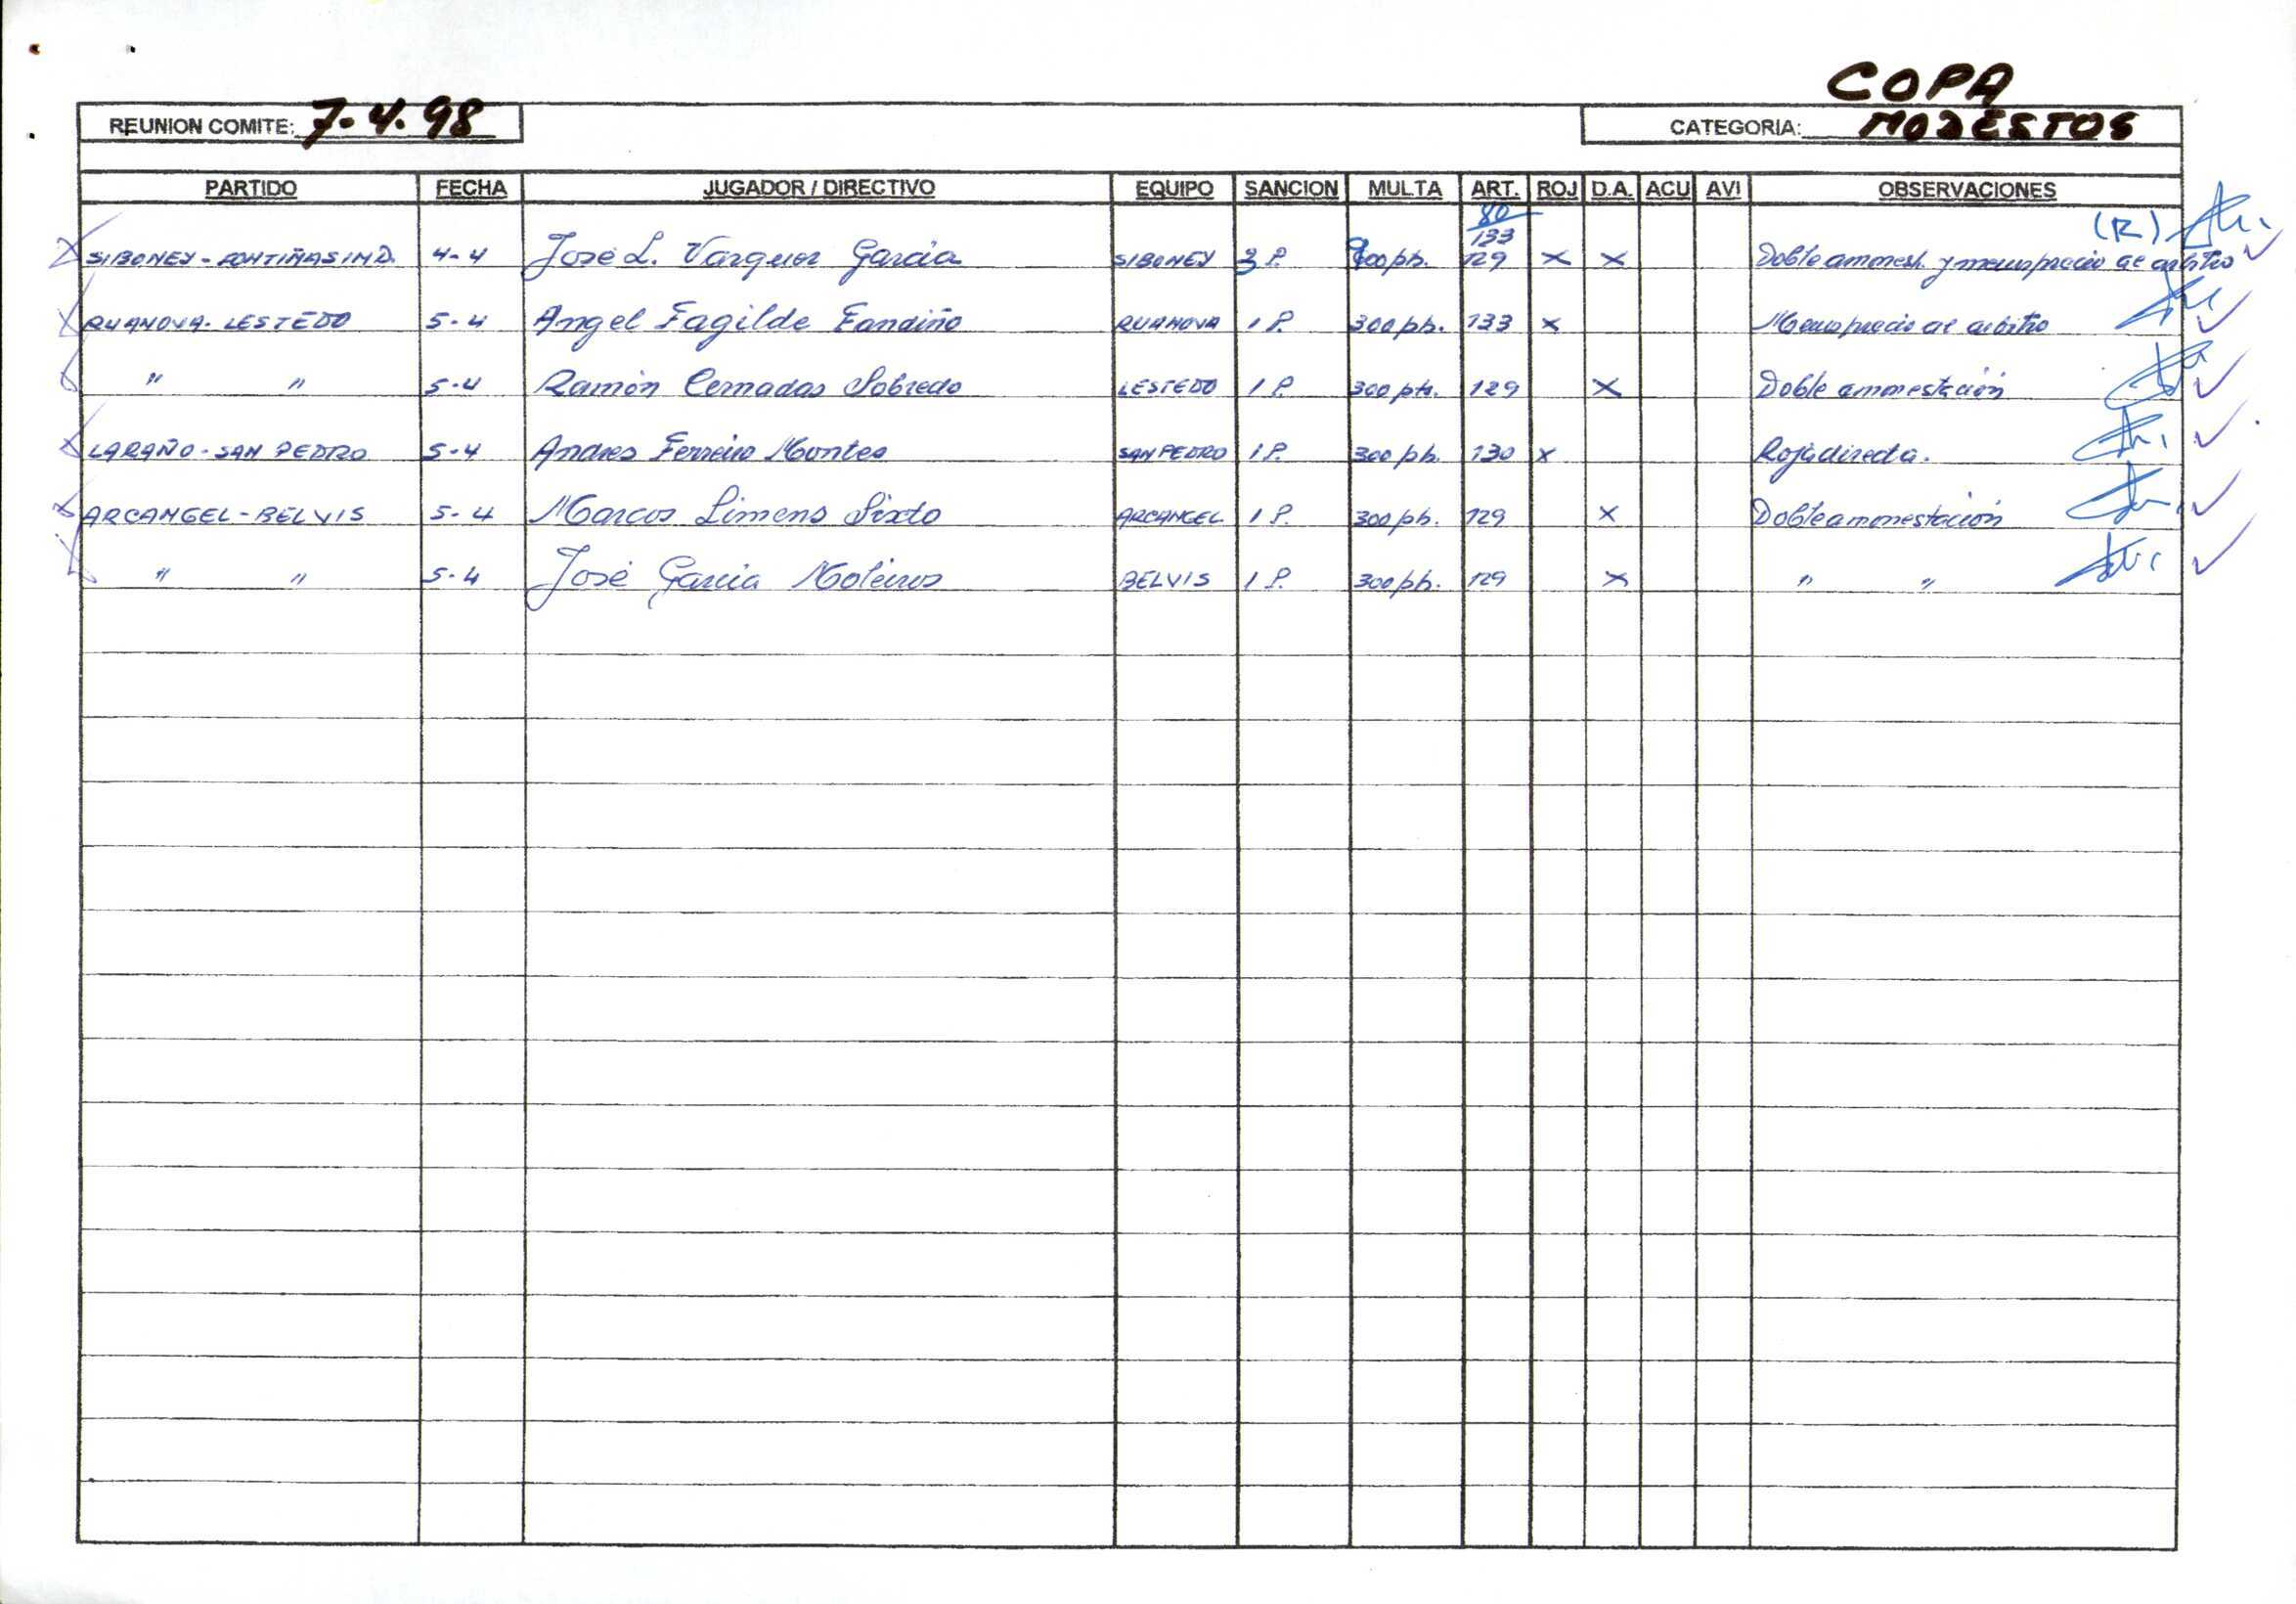 COPA
REUNION COMITE: 7-4-98 CATEGORIA: MODESTOS
PARTIDO FECHA JUGADOR / DIRECTIVO EQUIPO SANCION MULTA ART. ROJ D.A. ACU AVI OBSERVACIONES
80
133 (R)
SIBONEY - FONTIÑAS IND. 4-4 José L. Vazquez Garcia SIBONEY 3 P. 900 pts. 129 X X Doble amonest. y menosprecio al arbitro
RUANOVA - LESTEDO 5-4 Angel Fagilde Fandiño RUANOVA 1 P. 300 pts. 133 X Menosprecio al arbitro
" " 5-4 Ramón Cernadas Sobredo LESTEDO 1 P. 300 pts. 129 X Doble amonestación
LARAÑO - SAN PEDRO 5-4 Andres Ferreiro Montes SAN PEDRO 1 P. 300 pts. 130 X Roja directa.
ARCANGEL - BELVIS 5-4 Marcos Limens Sixto ARCANGEL 1 P. 300 pts. 129 X Doble amonestación
" " 5-4 José Garcia Moleiros BELVIS 1 P. 300 pts. 129 X " "